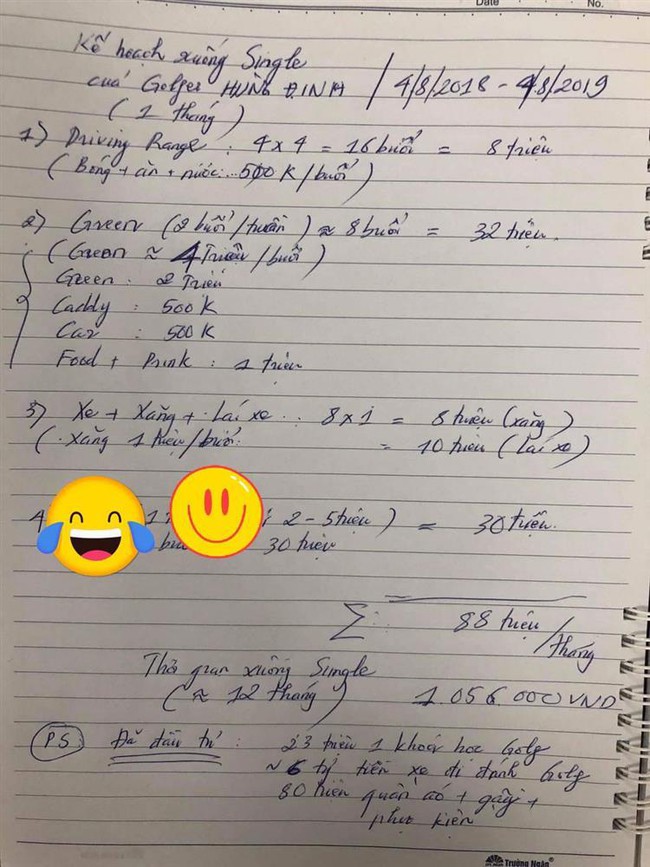 Date No.
Kế hoạch xuống Single
của Golfer HÙNG ĐINH / 4/8/2018 - 4/8/2019
( 1 tháng )
1) Driving Range : 4 x 4 = 16 buổi = 8 triệu
( Bóng + ăn + nước... 500 K / buổi )
2) Green ( 2 buổi / tuần ) ≈ 8 buổi = 32 triệu.
( Green ≈ 4 Triệu / buổi )
Green : 2 Triệu
Caddy : 500 K
Car : 500 K
Food + Drink : 1 triệu
3) Xe + Xăng + Lái xe : 8 x 1 = 8 triệu (xăng)
( Xăng 1 triệu / buổi = 10 triệu ( Lái xe )
4 1 2 - 5 triệu ) = 30 triệu.
30 triệu
Σ : 88 triệu / tháng
Thời gian xuống Single
( ≈ 12 tháng ) 1.056.000 VND
PS Đã đầu tư : 23 triệu 1 khoá học Golf
~ 6 tỷ tiền xe đi đánh Golf
80 triệu quần áo + gậy +
phụ kiện
Trường Ngân